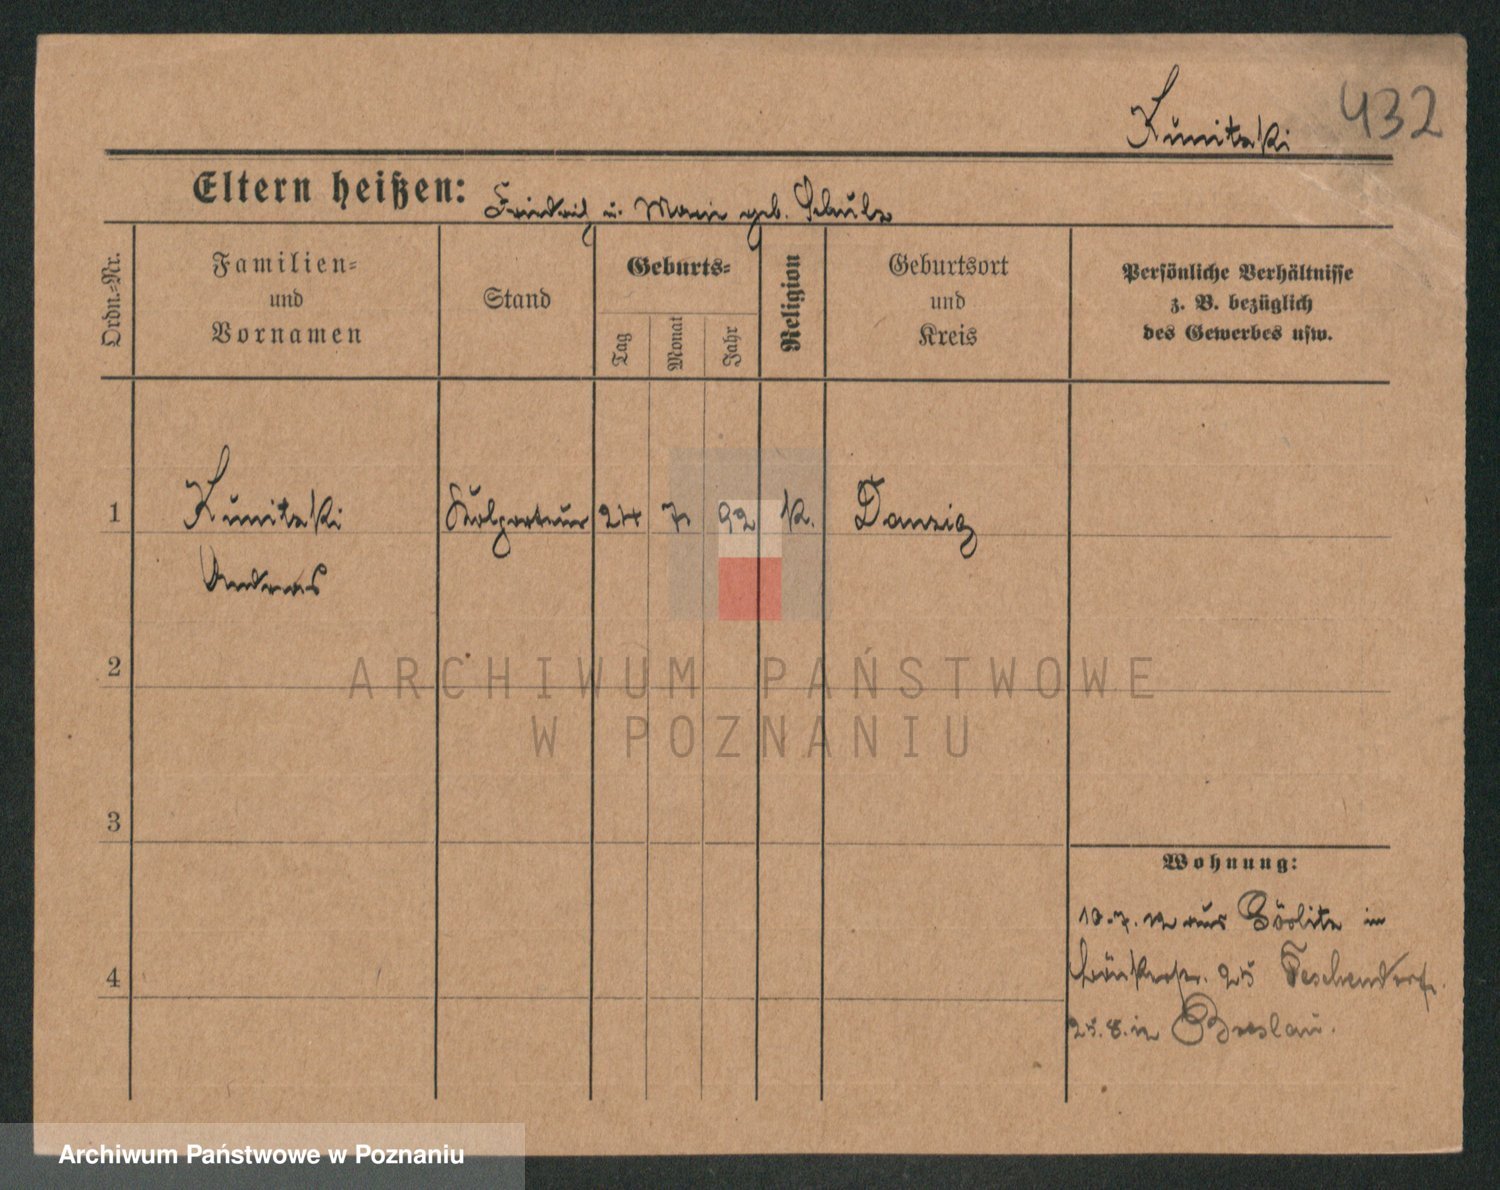 432
Kunitzki
Eltern heißen: Friedrich u. Marie geb. Schulz
Ordn.=Nr.
Familien=
und
Vornamen
Stand
Geburts=
Tag
Monat
Jahr
Religion
Geburtsort
und
Kreis
Persönliche Verhältnisse
z. B. bezüglich
des Gewerbes usw.
1 Kunitzki Kolporteur 24 7 92 k. Danzig
Andreas
2
ARCHIWUM PAŃSTWOWE
W POZNANIU
3
4
Wohnung:
10.7.12 aus Görlitz in
25 Teschendorf.
25.8. in Breslau.
Archiwum Państwowe w Poznaniu